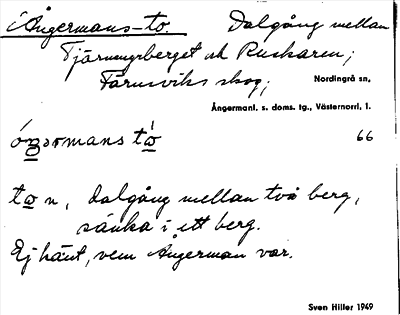 Ångermans-to. Dalgång mellan
Tjärnmyrberget och Ruskaren;
Färnsviks skog; Nordingrå sn,
Ångermanl. s. doms. tg., Västernorrl. l.
óŋərmans tò 66
to n, dalgång mellan två berg,
sänka i ett berg.
Ej känt, vem Ångerman var.
Sven Hiller 1949